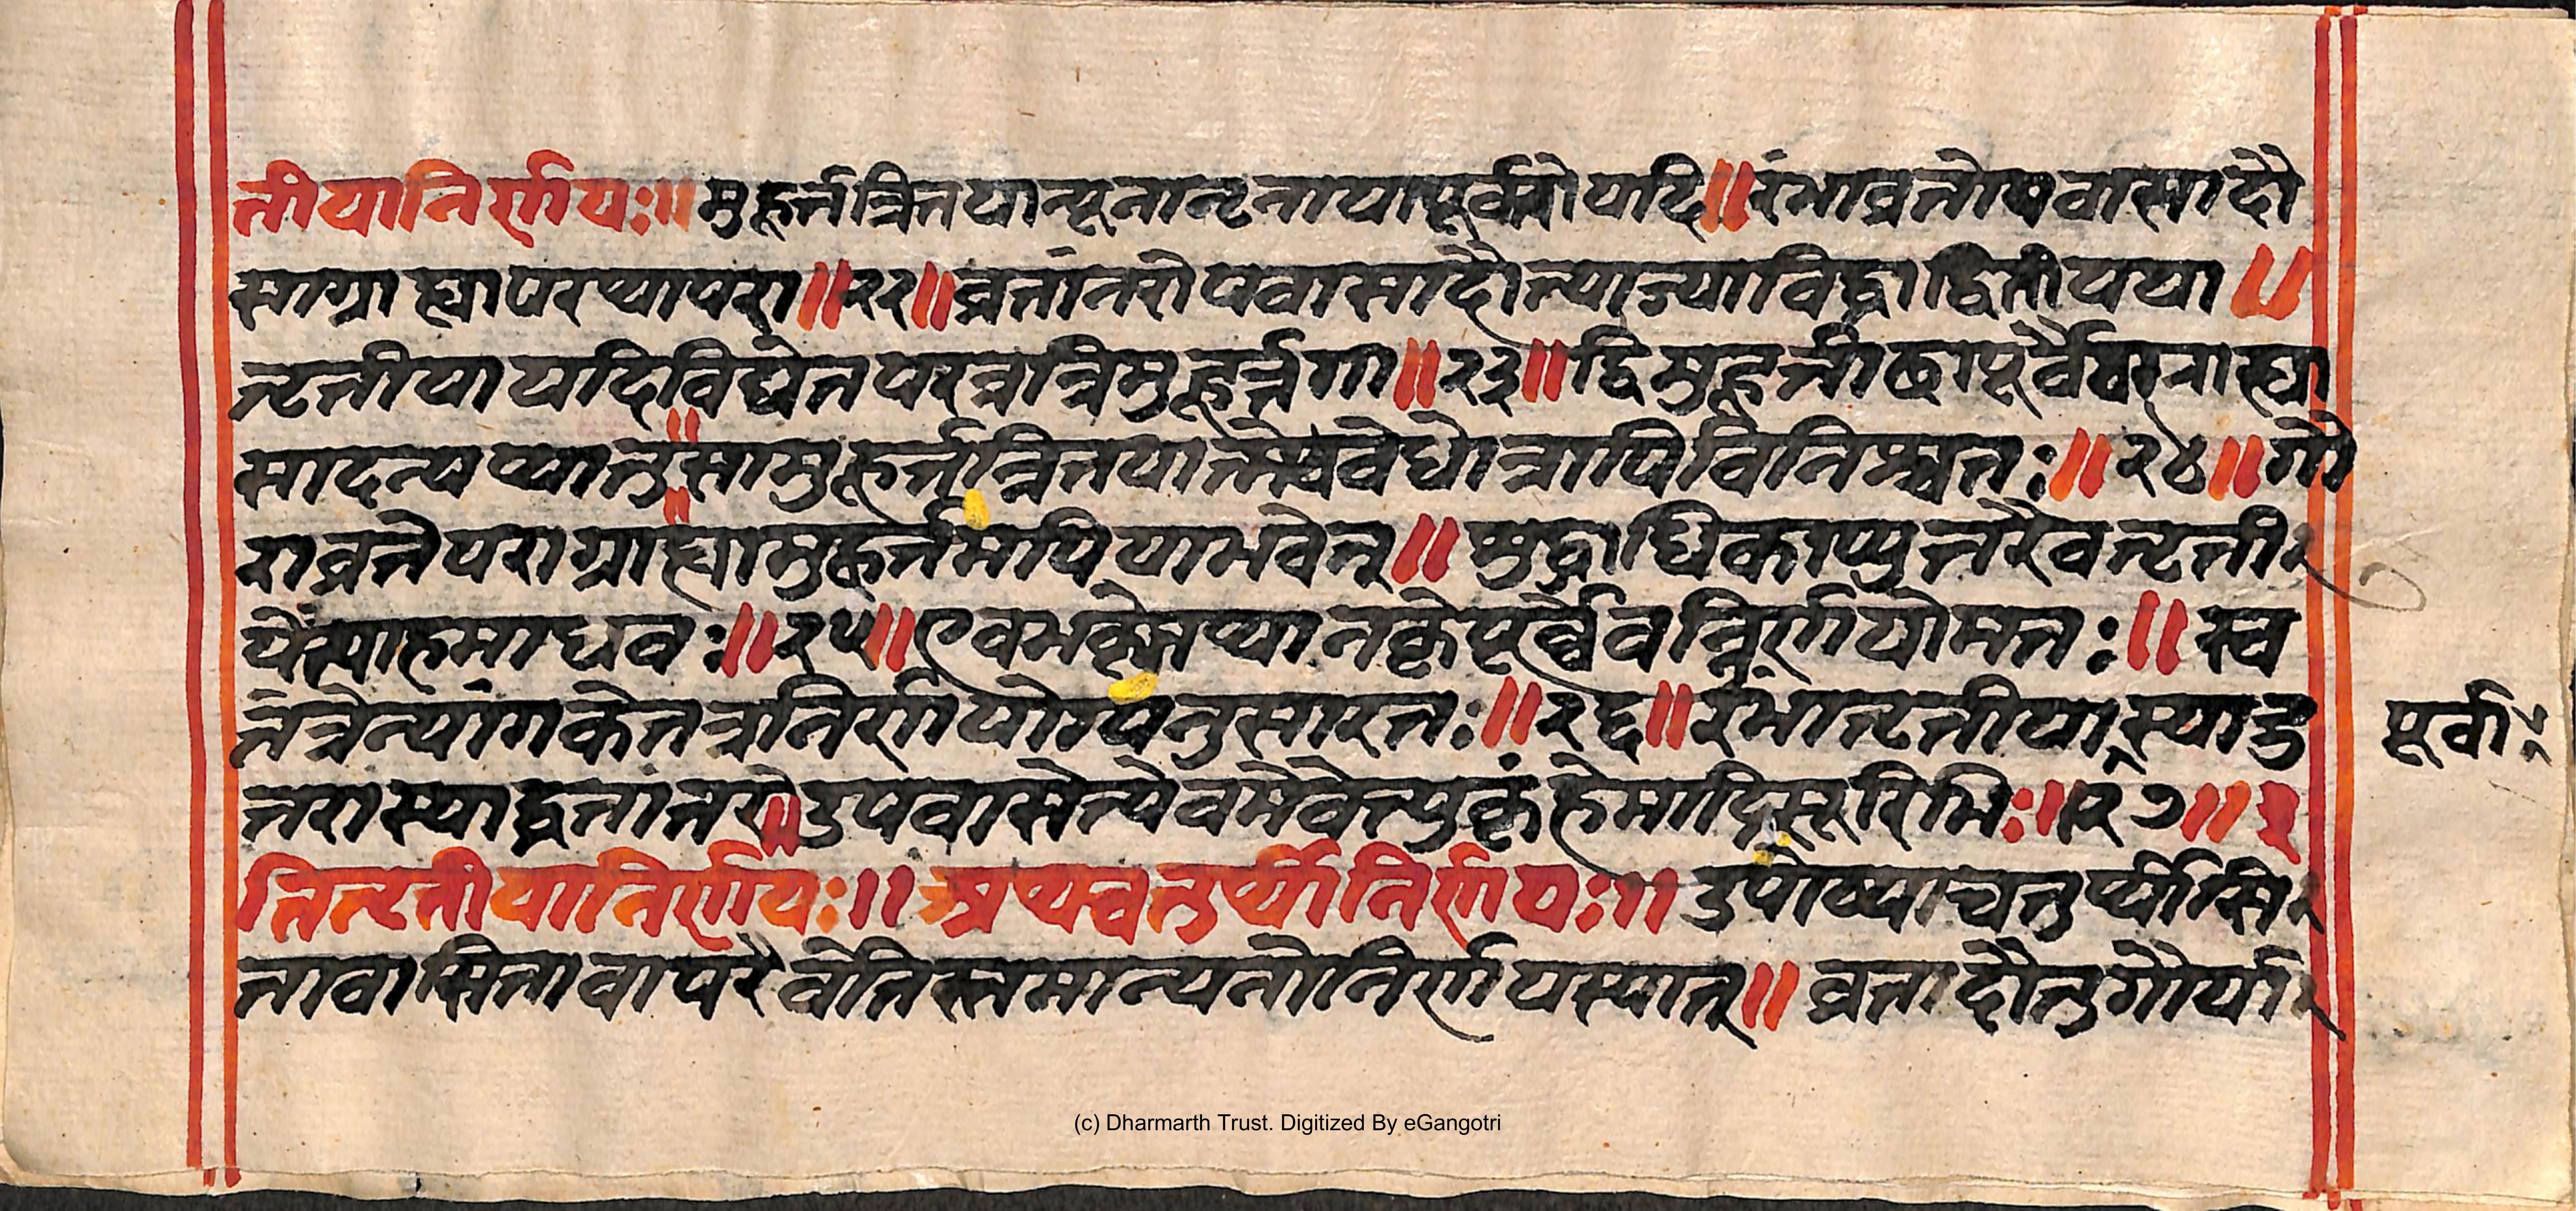 तीयानिर्णयः॥ मुहूर्त्तत्रितयान्यूनातृतीयापूर्वगोयदि॥ रंभाव्रतोपवासादौ
साग्राह्यापरथापरा॥२२॥ व्रतांतरोपवासादौत्याज्याविद्धाद्वितीयया॥
तृतीयायदिविद्येतपरत्रत्रिमुहूर्त्तगा॥२३॥ द्विमुहूर्त्ता
सादन्यथातु॥सामुहूर्त्तत्रितयात्त्वेववेधोत्रापिविनिश्चितः॥२४॥ गौ
राव्रतेपराग्राह्यामुहूर्त्तमपियाभवेत्॥ शुद्धाधिकाप्युत्तरैवतृती
येत्याहमाधवः॥२५॥ एवमेकान्नक्तेपूर्वैवनिर्णयोमतः॥ स्व
तंत्रेन्यांगकेतत्रनिर्णयोनुसारतः॥२६॥ रंभातृतीयास्यादु पूर्वा
त्तरास्याद्व्रतांतरे॥उपवासेत्येवमेवेत्युक्तंहेमाद्रिसूरिभिः॥२७॥ इ
तितृतीयानिर्णयः॥ अथचतुर्थीनिर्णयः॥ उपोष्याचतुर्थीसि
तावासितावापरैवेतितन्मान्यतोनिर्णयस्यात्॥ व्रतादौतुगौर्या
(c) Dharmarth Trust. Digitized By eGangotri